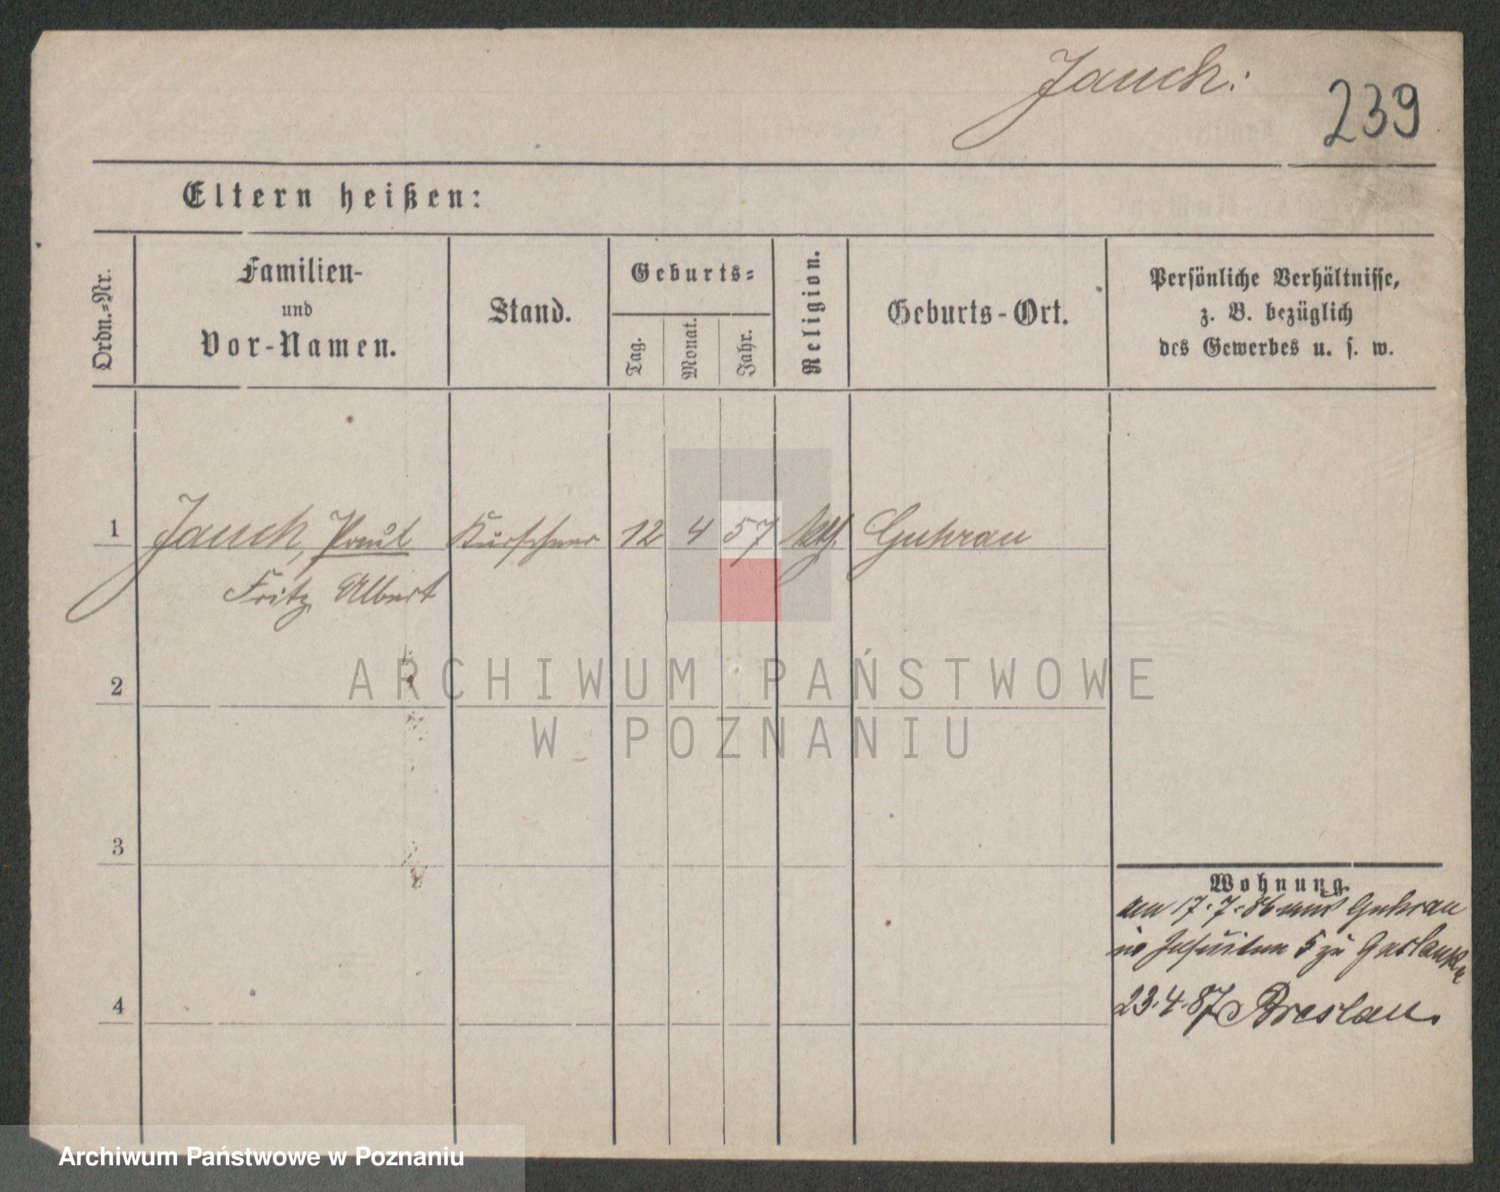 Jauch:
239
Eltern heißen:
Ordn.-Nr.
Familien-
und
Vor-Namen.
Stand.
Geburts-
Tag.
Monat.
Jahr.
Religion.
Geburts-Ort.
Persönliche Verhältnisse,
z. B. bezüglich
des Gewerbes u. s. w.
1 Jauch, Paul Kürschner 12 4 57 kth. Guhrau
Fritz Albert
2
ARCHIWUM PAŃSTWOWE
W POZNANIU
3
Wohnung.
am 17.7.86 aus Guhrau
Jesuiten 5 zu
4
23.4.87 Breslau.
Archiwum Państwowe w Poznaniu